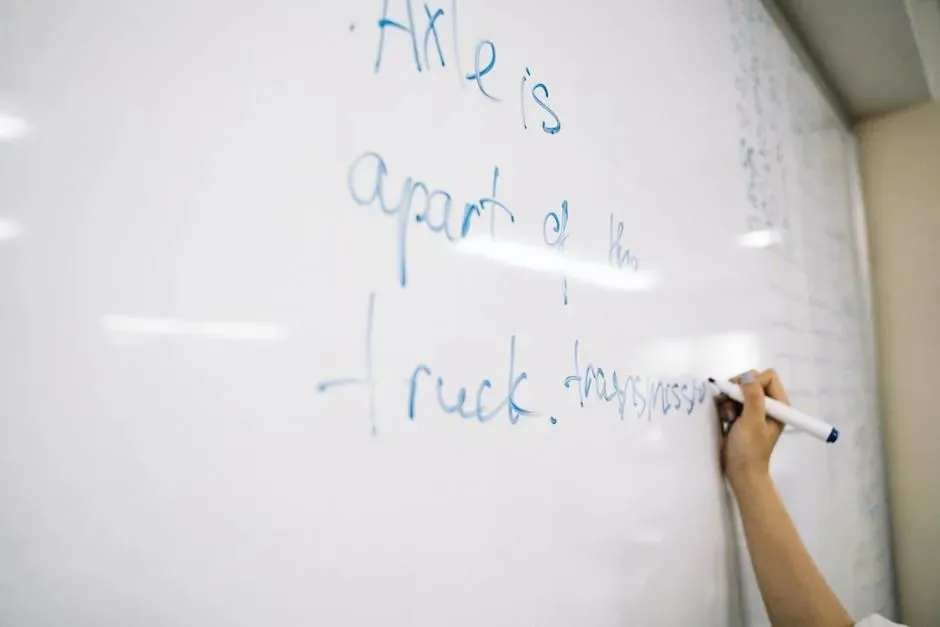 Axle is
apart of the
truck. transmission